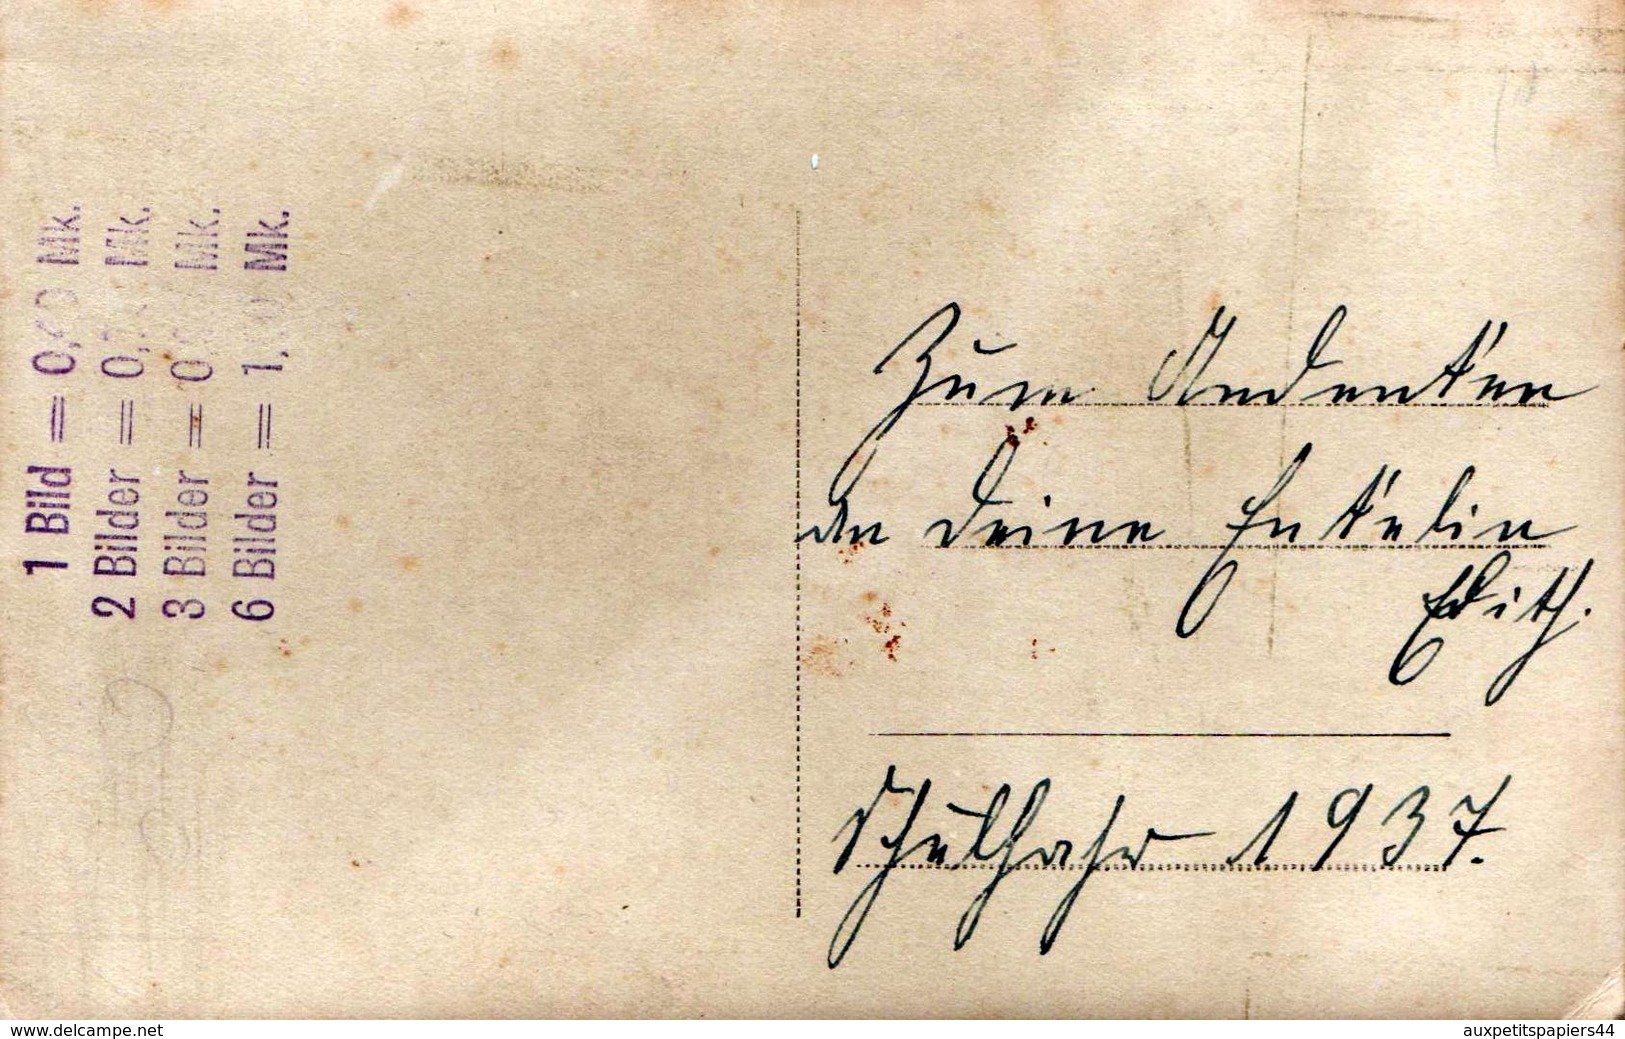 1 Bild = 0, Mk.
2 Bilder = 0, Mk.
3 Bilder = 0, Mk.
6 Bilder = 1, Mk.
Zum Andenken
an deine Enkelin
Edith.
Schuljahr 1937.
www.delcampe.net
auxpetitspapiers44